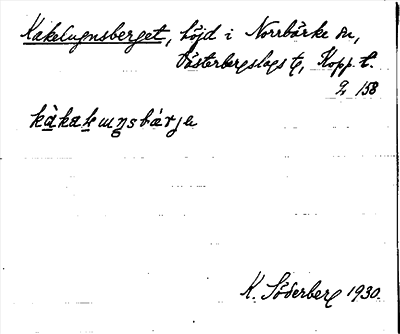 Kakelugnsberget, höjd i Norrbärke sn,
Västerbergslags tg, Kopp. l.
2 158
kàkalₑuŋsbárjɛ
K. Söderberg 1930.